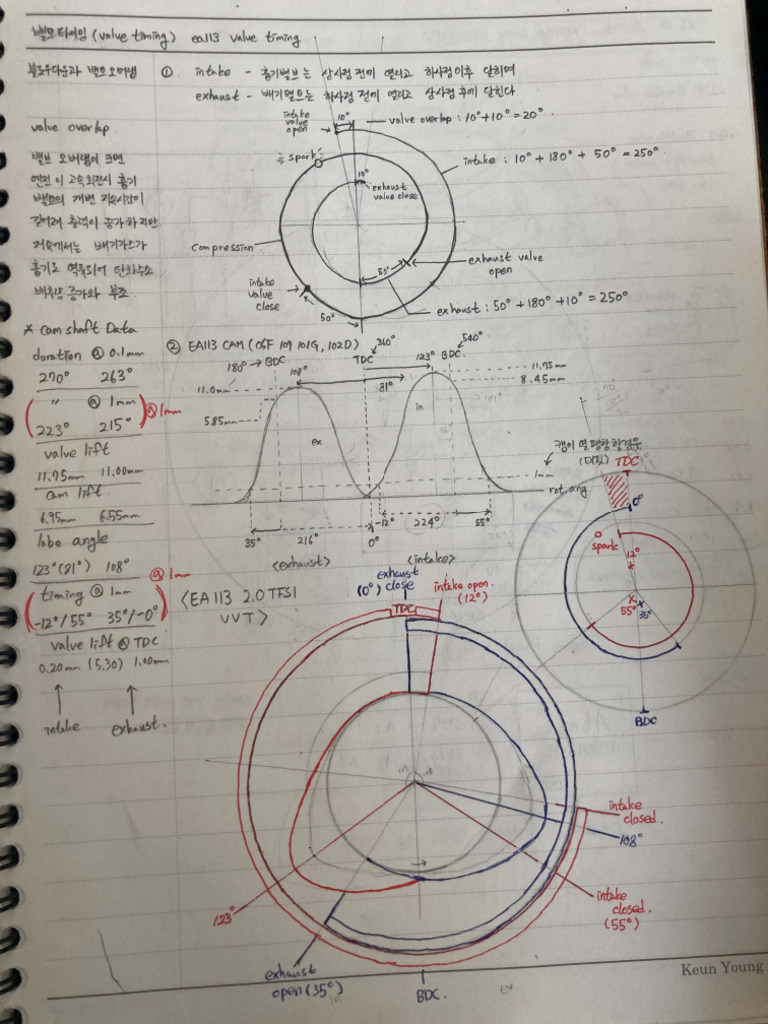 밸브타이밍 (valve timing) ea113 valve timing
블로우다운과 밸브오버랩
① intake - 흡기밸브는 상사점 전에 열리고 하사점 이후 닫히며
exhaust - 배기밸브는 하사점 전에 열리고 상사점 후에 닫힌다
value overlap
밸브 오버랩이 크면
엔진이 고속회전시 흡기
밸브의 개변 지속시간이
길어져 출력이 증가하지만
저속에서는 배기가스가
흡기로 역류되어 탄화수소
배출량 증가와 부조
intake
valve
open
10°
valve overlap : 10°+10° = 20°
spark
intake : 10° + 180° + 50° = 250°
10°
exhaust
valve close
compression
exhaust valve
open
50°
intake
valve
close
50°
exhaust : 50° + 180° + 10° = 250°
* cam shaft Data
duration @ 0.1mm
270° 263°
" @ 1mm
223° 215°
@ 1mm
valve lift
11.75mm 11.00mm
cam lift
6.95mm 6.55mm
lobe angle
123°(81°) 108°
@ 1mm
timing @ 1mm
-12°/55° 35°/-0°
valve lift @ TDC
0.20mm (5.30) 1.00mm
intake exhaust.
② EA113 CAM (06F 109 101G, 102D)
360°
540°
180° → BDC
TDC
123° BDC
108°
81°
11.0mm
11.75mm
8.45mm
5.85mm
ex
in
1mm
rot. ang
35°
216°
0°
-12°
224°
55°
<exhaust> <intake>
캠이
(대칭) TDC
0°
spark
12°
55°
35°
BDC
<EA113 2.0TFSI
VVT>
exhaust
(0°) close
intake open.
(12°)
TDC
123
108
intake
closed.
108°
intake
closed.
(55°)
123°
exhaust
open (35°)
BDC.
Keun Young